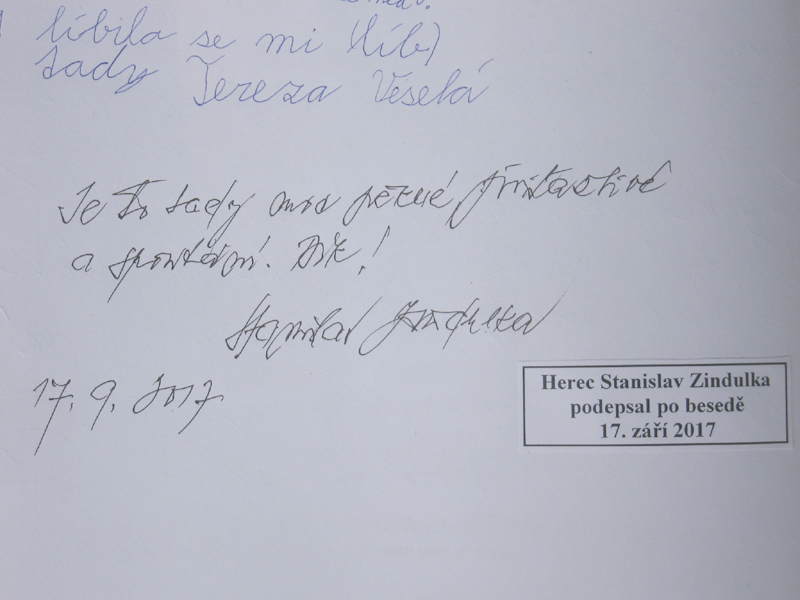 líbila se mi (líb)
tady Tereza Veselá
Je to tady moc pěkné
a spontánní. Dík!
Stanislav Zindulka
17. 9. 2017
Herec Stanislav Zindulka
podepsal po besedě
17. září 2017